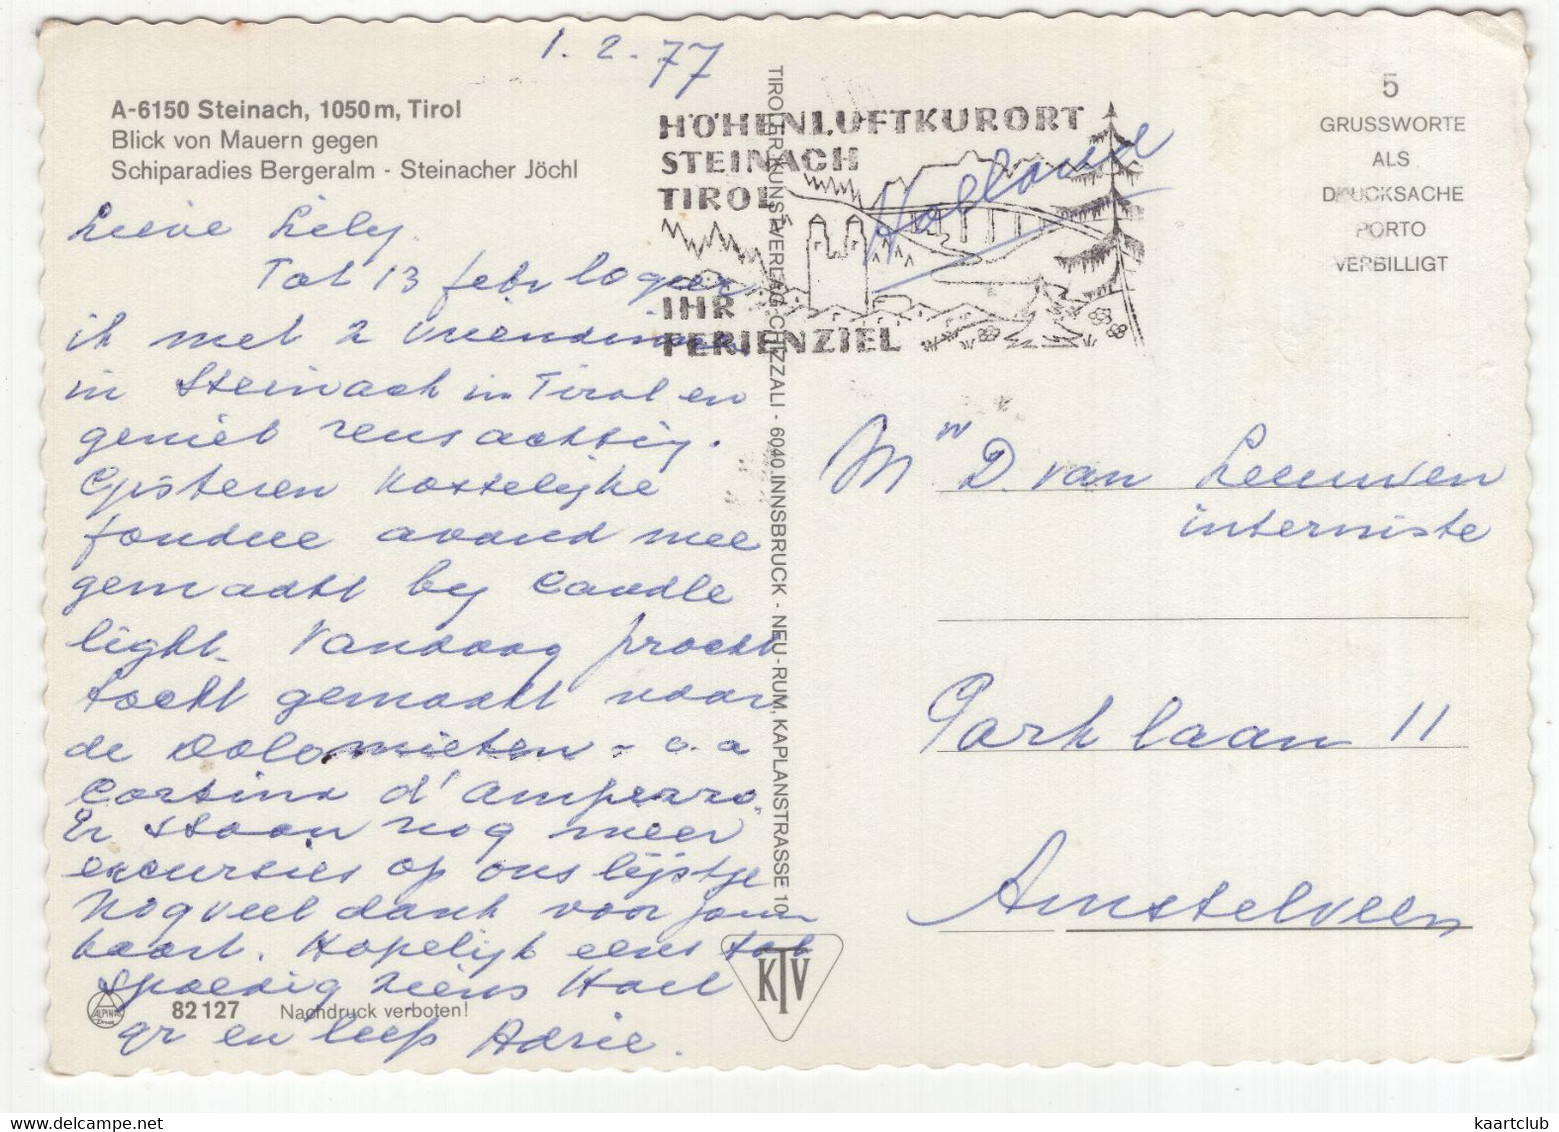 1.2.77
A-6150 Steinach, 1050 m, Tirol
Blick von Mauern gegen
Schiparadies Bergeralm - Steinacher Jöchl
Lieve Lily.
Tot 13 febr logeer
ik met 2 vriendinnen
in Steinach in Tirol en
geniet reusachtig.
Gisteren kostelijke
fondue avond mee
gemaakt by candle
light. Vandaag pracht
tocht gemaakt naar
de Dolomieten - o.a
Cortina d'Amperzo.
Er staan nog meer
excursies op ons lijstje
Nog veel dank voor jouw
kaart. Hopelijk eens tot
spoedig ziens Hart
gr en liefs Adrie.
82 127 Nachdruck verboten!
ALPINA
Druck
TIROLER KUNSTVERLAG CHIZZALI - 6040 INNSBRUCK - NEU-RUM, KAPLANSTRASSE 10
KTV
HÖHENLUFTKURORT
STEINACH
TIROL
IHR
FERIENZIEL
Holland
5
GRUSSWORTE
ALS
DRUCKSACHE
PORTO
VERBILLIGT
Mw D. van Leeuwen
interniste
Parklaan 11
Amstelveen
kaartclub